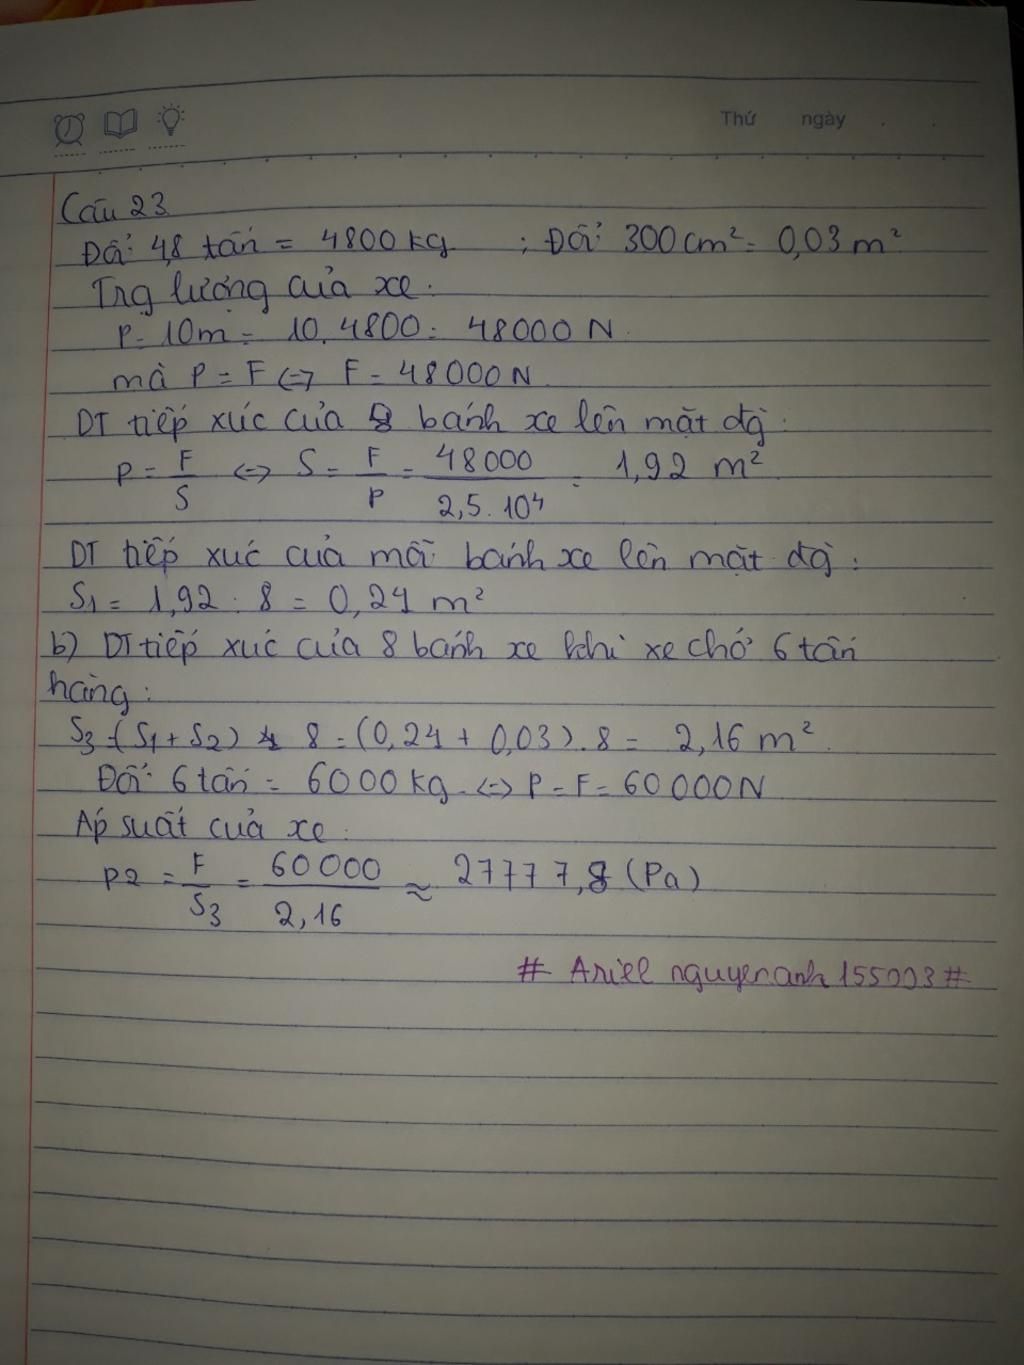 Thứ ngày
Câu 23
Đổi 4,8 tấn = 4800 kg ; Đổi 300 cm² = 0,03 m²
Trg lượng của xe:
P = 10m = 10.4800 = 48000 N
mà P = F <=> F = 48000 N
DT tiếp xúc của 8 bánh xe lên mặt đg:
P = F/S <=> S = F/P = 48000/2,5.10⁴ = 1,92 m²
DT tiếp xúc của mỗi bánh xe lên mặt đg:
S1 = 1,92 : 8 = 0,24 m²
b) DT tiếp xúc của 8 bánh xe khi xe chở 6 tấn
hàng:
S3 = (S1 + S2) 8 = (0,24 + 0,03).8 = 2,16 m².
Đổi 6 tấn = 6000 kg <=> P = F = 60000N
Áp suất của xe:
P2 = F/S3 = 60000/2,16 ≈ 27777,8 (Pa)
# Ariel nguyenanh155003 #